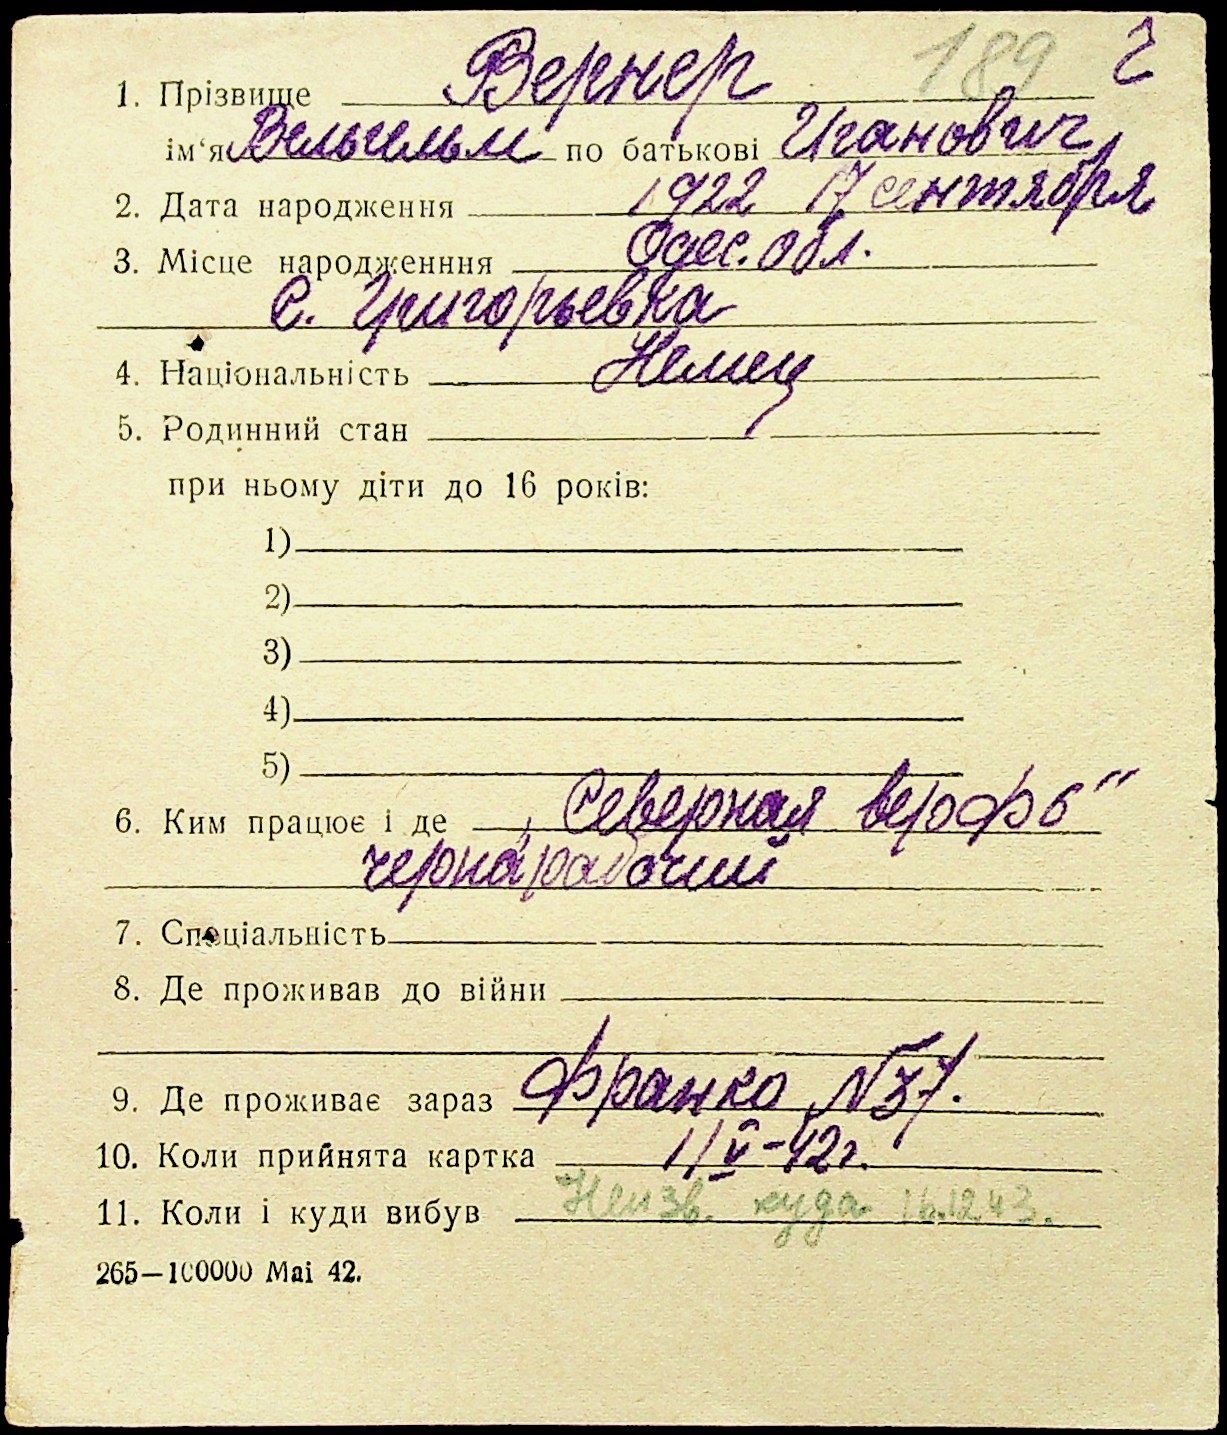 189 2
1. Прізвище Вернер
ім‘я Вельгельм по батькові Иганович
2. Дата народження 1922 17 сентября
3. Місце народженння Одес. обл.
с. Григорьевка
4. Національність Немец
5. Родинний стан
при ньому діти до 16 років:
1)
2)
3)
4)
5)
6. Ким працює і де „Северная верфь“
чернарабочий
7. Спеціальність
8. Де проживав до війни
9. Де проживає зараз Франко N 37.
10. Коли прийнята картка 11/V-42г.
11. Коли і куди вибув Неизв. куда 16.12.43.
265—100000 Mai 42.